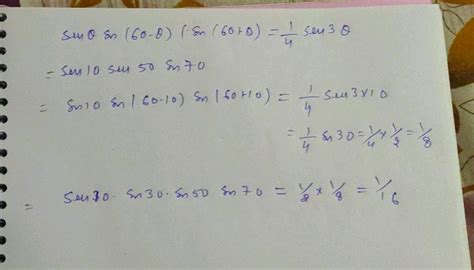 sin θ sin (60-θ) (sin (60+θ) = 1/4 sin 3θ
= sin 10 sin 50 sin 70
= sin 10 sin (60-10) sin (60+10) = 1/4 sin 3×10
= 1/4 sin 30 = 1/4 × 1/2 = 1/8
= sin 30. sin 50 sin 70 = 1/2 × 1/8 = 1/16